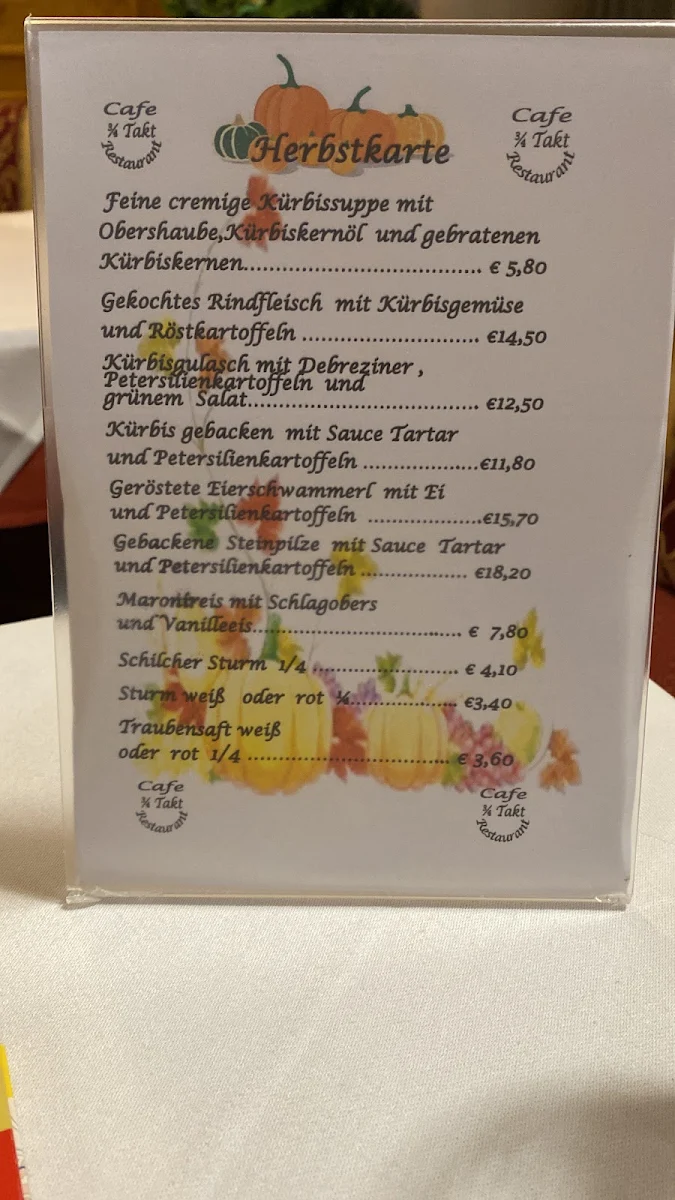 Cafe
¾ Takt
Restaurant
Herbstkarte
Cafe
¾ Takt
Restaurant
Feine cremige Kürbissuppe mit
Obershaube,Kürbiskernöl und gebratenen
Kürbiskernen.................................... € 5,80
Gekochtes Rindfleisch mit Kürbisgemüse
und Röstkartoffeln ........................... €14,50
Kürbisgulasch mit Debreziner ,
Petersilienkartoffeln und
grünem Salat................................... €12,50
Kürbis gebacken mit Sauce Tartar
und Petersilienkartoffeln ..................€11,80
Geröstete Eierschwammerl mit Ei
und Petersilienkartoffeln ..................€15,70
Gebackene Steinpilze mit Sauce Tartar
und Petersilienkartoffeln ................. €18,20
Maronireis mit Schlagobers
und Vanilleeis................................. € 7,80
Schilcher Sturm 1/4 ....................... € 4,10
Sturm weiß oder rot ¼................. €3,40
Traubensaft weiß
oder rot 1/4 ................................ € 3,60
Cafe
¾ Takt
Restaurant
Cafe
¾ Takt
Restaurant